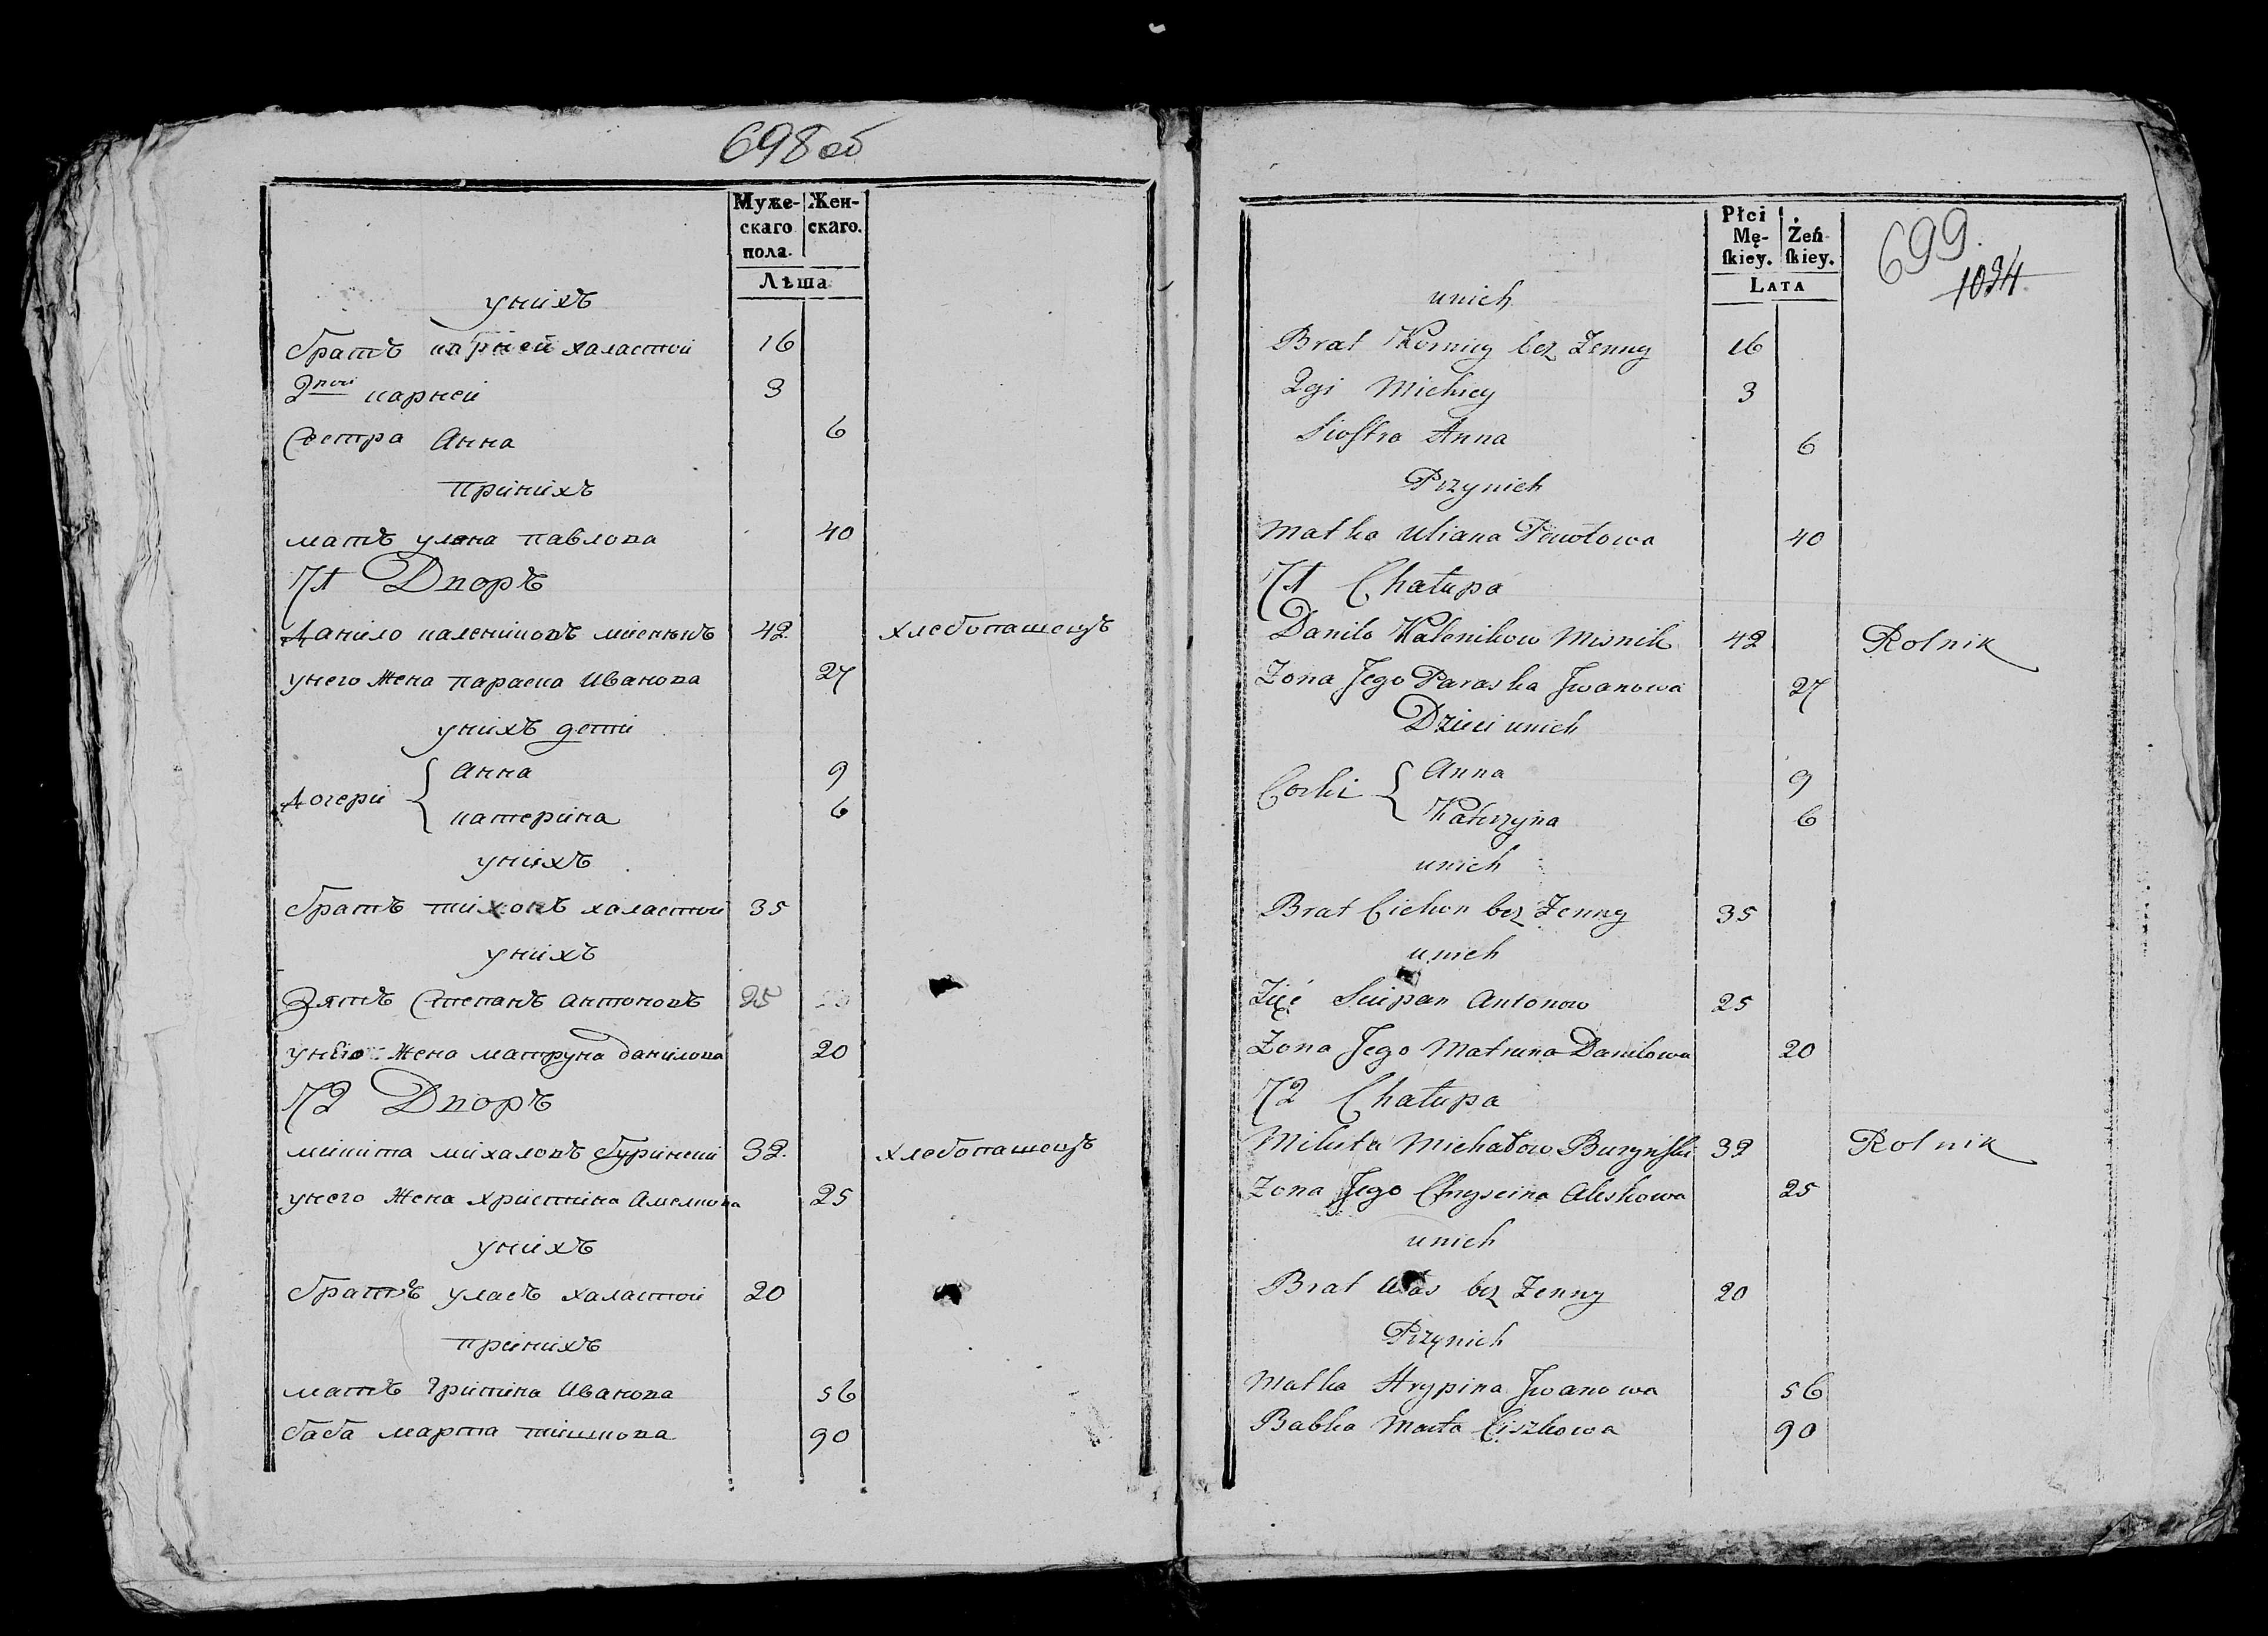 698 об
Муже-
скаго
пола.
Жен-
скаго.
Лѣта
унихъ
братъ корней халастой 16
2гой корней 3
Сестра Анна 6
принихъ
матъ уляна павлова 40
71 Дворъ
Данило калениковъ мисникъ 42 хлебопашецъ
унего жена параска Иванова 27
унихъ дети
Дочери { Анна 9
катерина 6
унихъ
братъ тихонъ халастой 35
унихъ
Зятъ Степанъ антоновъ 25
унего жена матруна данилова 20
72 Дворъ
микита михаловъ буринский 32 хлебопашецъ
унего жена христина Алешкова 25
унихъ
братъ уласъ халастой 20
принихъ
матъ грипина Иванова 56
баба марта тишкова 90
699.
1094
Płci
Mę-
ſkiey.
Żeń
ſkiey.
LATA
unich
Brat Korniey bez Zenny 16
2gi Michiey 3
Siostra Anna 6
Przynich
Matka Uliana Pawłowa 40
71 Chałupa
Daniło Kalenikow Misnik 42 Rolnik
Zona Jego Paraska Jwanowa 27
Dzieci unich
Corki { Anna 9
Katerzyna 6
unich
Brat Cichon bez Zenny 35
unich
Zięć Sciepan Antonow 25
Zona Jego Matruna Daniłowa 20
72 Chałupa
Mikita Michałow Buryński 32 Rolnik
Zona Jego Chryscina Aleskowa 25
unich
Brat Ułas bez Zenny 20
Przynich
Matka Hrypina Jwanowa 56
Babka Marta Ciszkowa 90